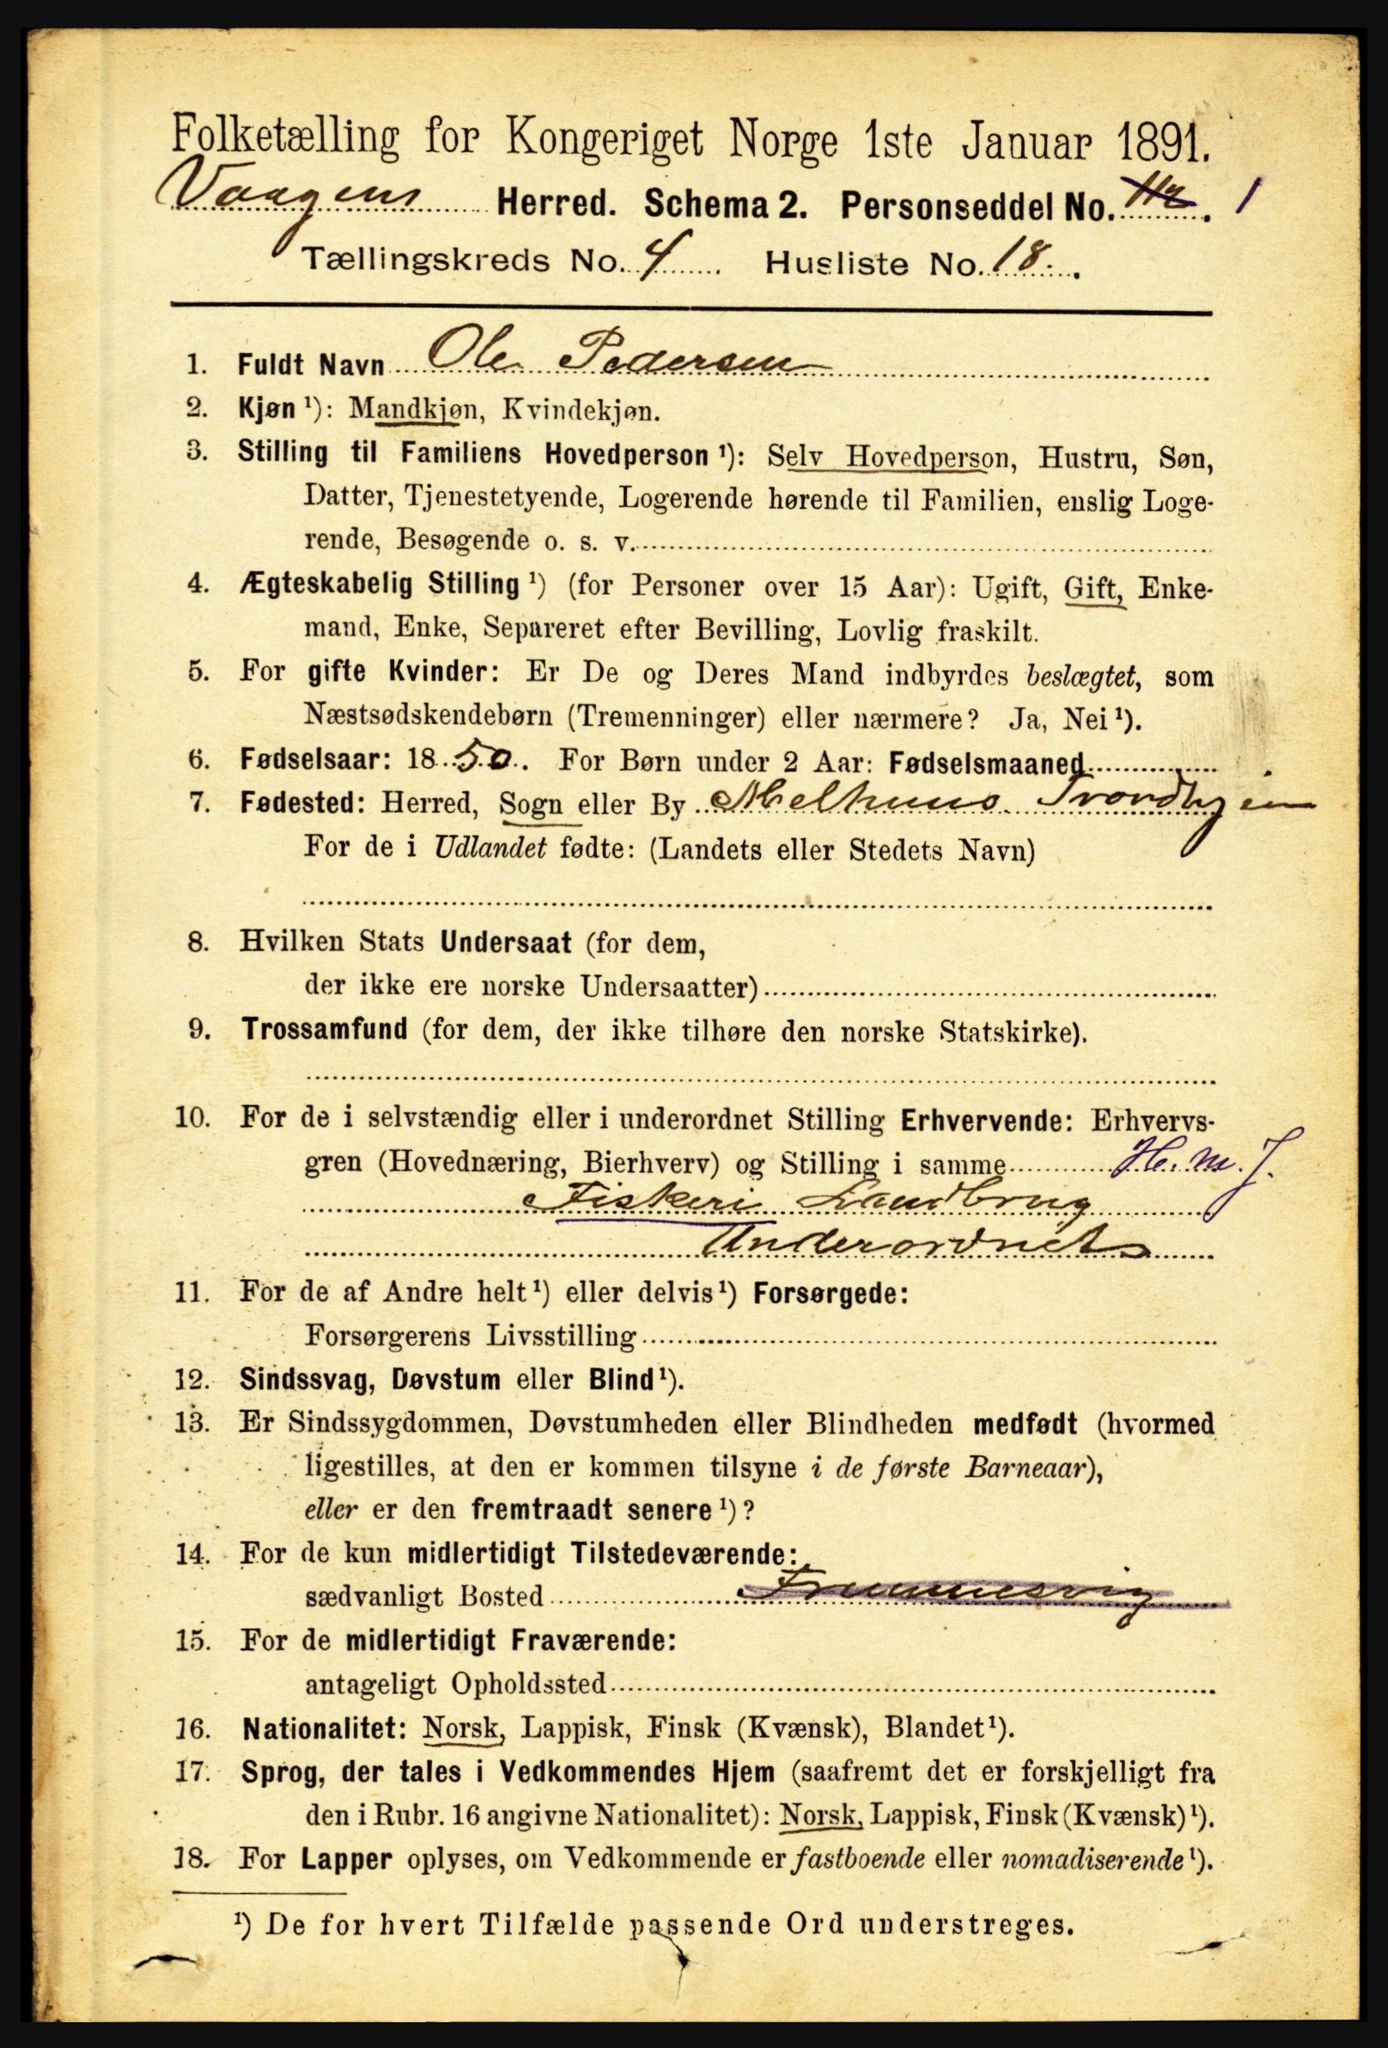 Folketælling for Kongeriget Norge 1ste Januar 1891.
Vaagens Herred. Schema 2. Personseddel No. 1
Tællingskreds No. 4 Husliste No. 18.
1. Fuldt Navn Ole Pedersen
2. Kjøn ¹): Mandkjøn, Kvindekjøn.
3. Stilling til Familiens Hovedperson ¹): Selv Hovedperson, Hustru, Søn,
Datter, Tjenestetyende, Logerende hørende til Familien, enslig Loge-
rende, Besøgende o. s. v.
4. Ægteskabelig Stilling ¹) (for Personer over 15 Aar): Ugift, Gift, Enke-
mand, Enke, Separeret efter Bevilling, Lovlig fraskilt.
5. For gifte Kvinder: Er De og Deres Mand indbyrdes beslægtet, som
Næstsødskendebørn (Tremenninger) eller nærmere? Ja, Nei ¹).
6. Fødselsaar: 1850. For Børn under 2 Aar: Fødselsmaaned
7. Fødested: Herred, Sogn eller By Melhuus Trondhjem
For de i Udlandet fødte: (Landets eller Stedets Navn)
8. Hvilken Stats Undersaat (for dem,
der ikke ere norske Undersaatter)
9. Trossamfund (for dem, der ikke tilhøre den norske Statskirke).
10. For de i selvstændig eller i underordnet Stilling Erhvervende: Erhvervs-
gren (Hovednæring, Bierhverv) og Stilling i samme H. m. J.
Fiskeri Landbrug
Underordnet
11. For de af Andre helt ¹) eller delvis ¹) Forsørgede:
Forsørgerens Livsstilling
12. Sindssvag, Døvstum eller Blind ¹).
13. Er Sindssygdommen, Døvstumheden eller Blindheden medfødt (hvormed
ligestilles, at den er kommen tilsyne i de første Barneaar),
eller er den fremtraadt senere ¹)?
14. For de kun midlertidigt Tilstedeværende:
sædvanligt Bosted
15. For de midlertidigt Fraværende:
antageligt Opholdssted
16. Nationalitet: Norsk, Lappisk, Finsk (Kvænsk), Blandet ¹).
17. Sprog, der tales i Vedkommendes Hjem (saafremt det er forskjelligt fra
den i Rubr. 16 angivne Nationalitet): Norsk, Lappisk, Finsk (Kvænsk) ¹).
18. For Lapper oplyses, om Vedkommende er fastboende eller nomadiserende ¹).
¹) De for hvert Tilfælde passende Ord understreges.